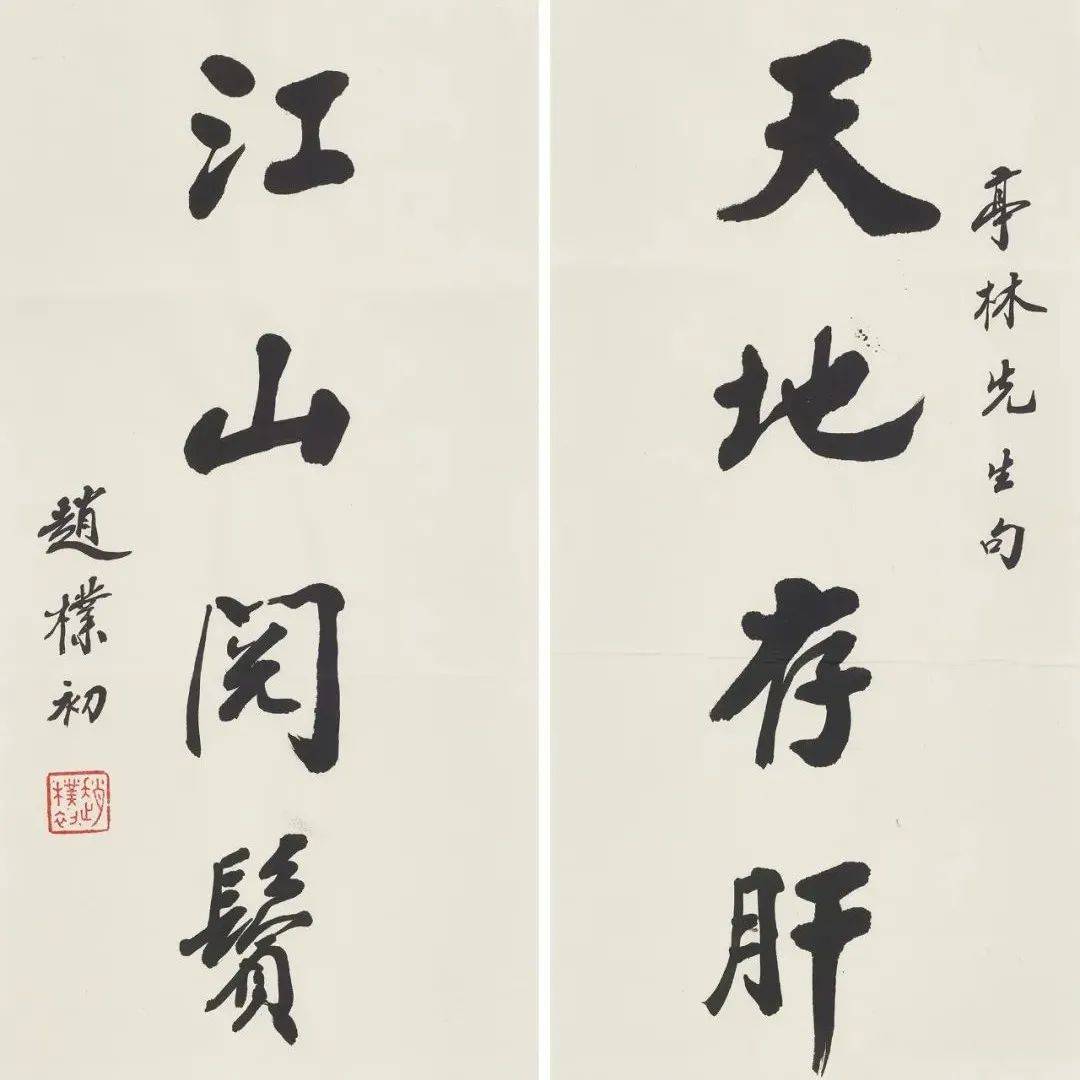 亭林先生句
天地存肝
江山阅鬓
趙樸初
趙樸初